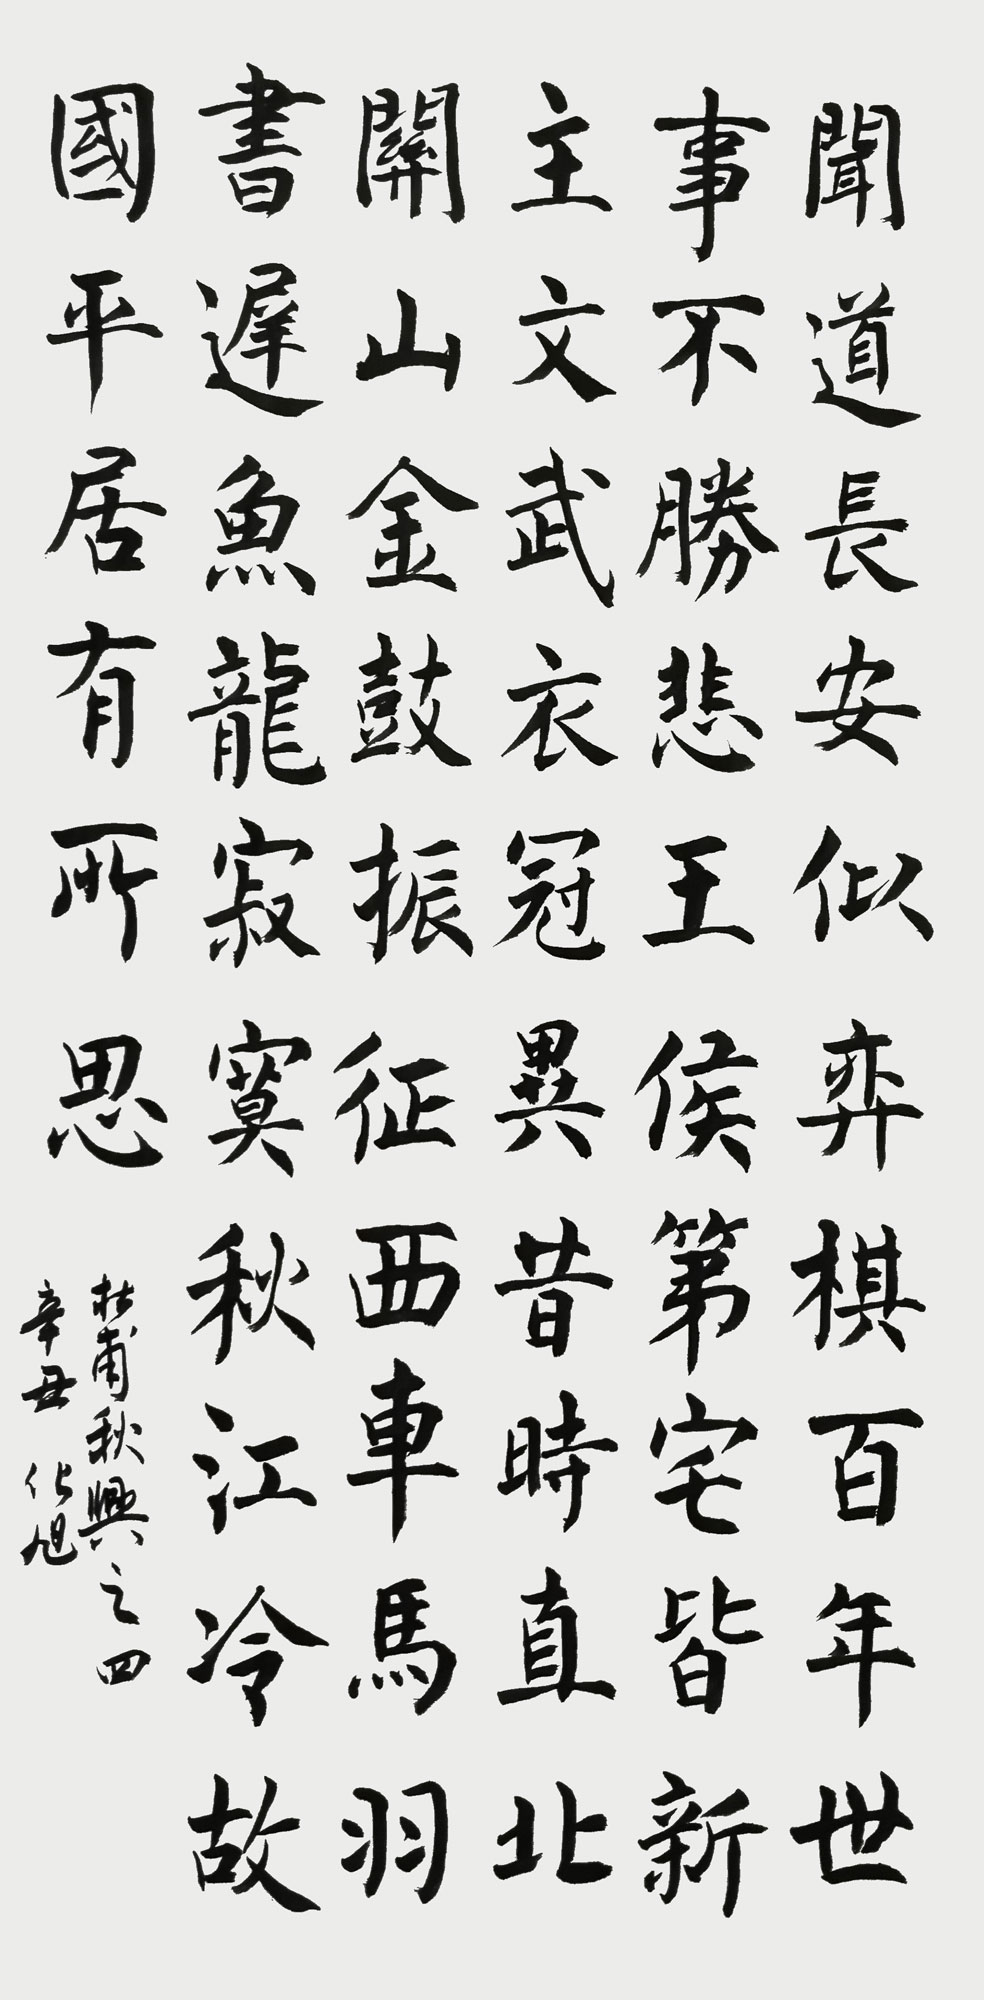 聞道長安似弈棋百年世
事不勝悲王侯第宅皆新
主文武衣冠異昔時直北
關山金鼓振征西車馬羽
書遲魚龍寂寞秋江冷故
國平居有所思
杜甫秋興之四
辛丑 化旭